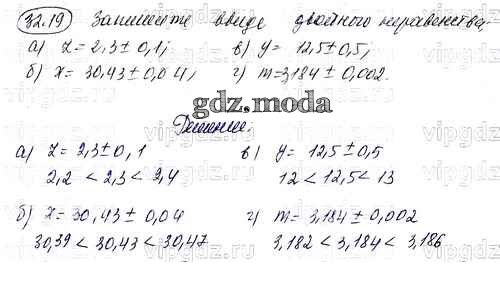 32.19 Запишите ввиде двойного неравенства,
а) z = 2,3 ± 0,1; в) y = 12,5 ± 0,5;
б) x = 30,43 ± 0,04; г) m = 3,184 ± 0,002.
gdz.moda
Решение:
а) z = 2,3 ± 0,1 в) y = 12,5 ± 0,5
2,2 < 2,3 < 2,4 12 < 12,5 < 13
б) x = 30,43 ± 0,04 г) m = 3,184 ± 0,002
30,39 < 30,43 < 30,47 3,182 < 3,184 < 3,186